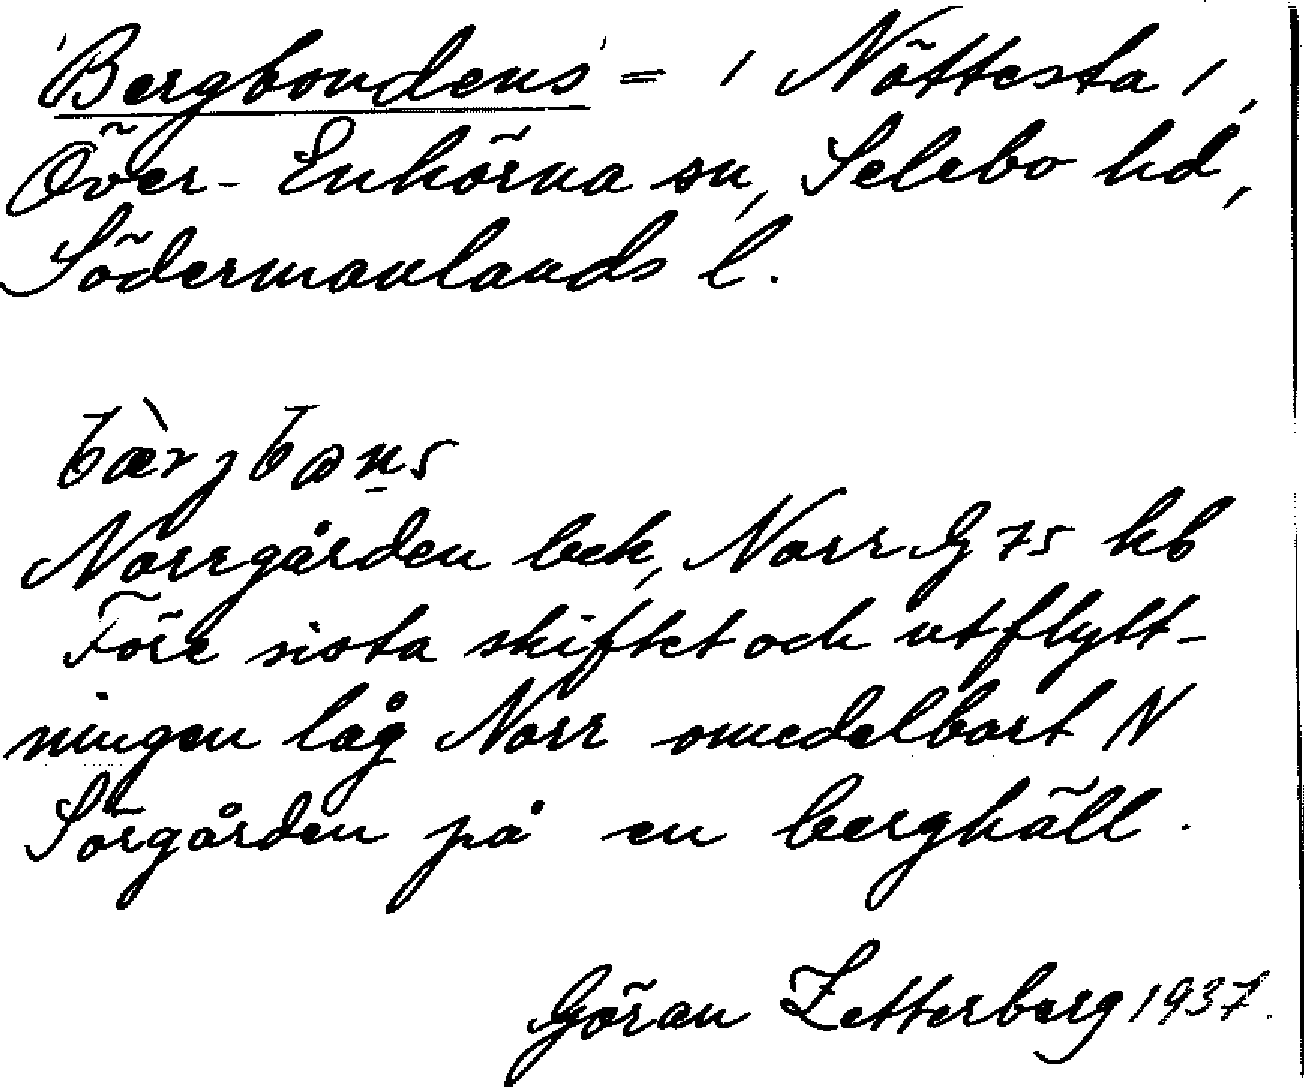 'Bergbondens' = / Nöttesta /,
Över-Enhörna sn, Selebo hd,
Södermanlands l.
bær̀jbɷṇs
Norrgården beb, Norr G 75 kb
Före sista skiftet och utflytt-
ningen låg Norr omedelbart N
Sörgården på en berghäll.
Göran Zetterberg 1937.